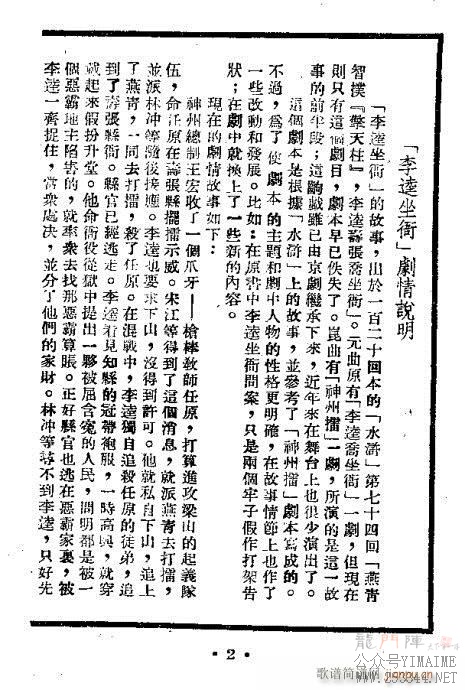 「李逵坐衙」劇情說明
「李逵坐衙」的故事，出於一百二十回本的「水滸」第七十四回「燕青
智撲『擎天柱』，李逵壽張喬坐衙」。元曲原有「李逵喬坐衙」一劇，但現在
則只有這個劇目，劇本早已佚失了。崑曲有「神州擂」一劇，所演的是這一故
事的前半段；這齣戲雖已由京劇繼承下來，近年來在舞台上也很少演出了。
這個劇本是根據「水滸」上的故事，並參考了「神州擂」劇本寫成的。
不過，爲了使劇本的主題和劇中人物的性格更明確，在故事情節上也作了
一些改動和發展。比如：在原書中李逵坐衙問案，只是兩個牢子假作打架告
狀；在劇中就換上了一些新的內容。
現在的劇情故事如下：
神州總制王宏收了一個爪牙——槍棒敎師任原，打算進攻梁山的起義隊
伍，命任原在壽張縣擺擂示威。宋江等得到了這個消息，就派燕青去打擂，
並派林冲等隨後接應。李逵也要求下山，沒得到許可。他就私自下山，追上
了燕青，一同去打擂，殺了任原。在混戰中，李逵獨自追殺任原的徒弟，追
到了壽張縣衙。縣官已經逃走。李逵看見知縣的冠帶袍服，一時高興，就穿
戴起來假扮升堂。他命衙役從獄中提出一夥被屈含寃的人民，問明都是被一
個惡霸地主陷害的，就率衆去找那惡霸算賬。正好縣官也逃在惡霸家裏，被
李逵一齊捉住，當衆處决，並分了他們的家財。林冲等尋不到李逵，只好先
· 2 ·
龍門陣
公众号YIMAIME